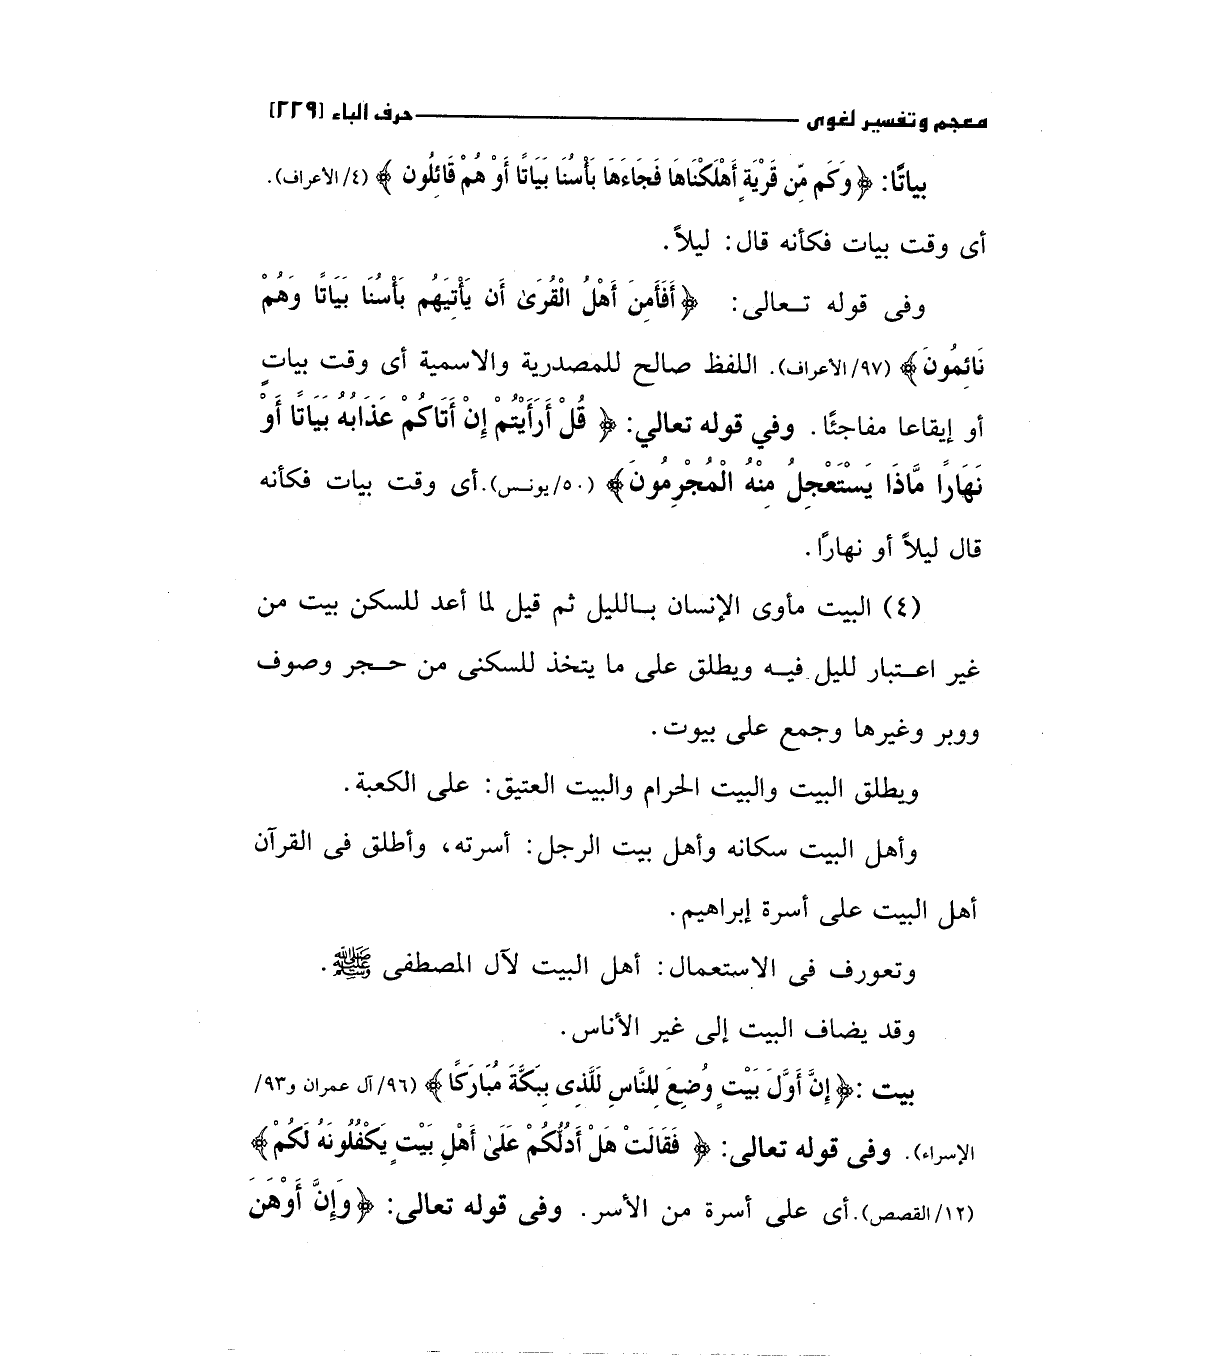 معجم وتفسير لغوى ـــــــــ حرف الباء [٢٢٩]
بياتًا: ﴿ وَكَم مِّن قَرْيَةٍ أَهْلَكْنَاهَا فَجَاءَهَا بَأْسُنَا بَيَاتًا أَوْ هُمْ قَائِلُون ﴾ (٤/ الأعراف).
أى وقت بيات فكأنه قال: ليلاً.
وفى قوله تـعالى: ﴿أَفَأَمِنَ أَهْلُ الْقُرَىٰ أَن يَأْتِيَهُم بَأْسُنَا بَيَاتًا وَهُمْ
نَائِمُونَ﴾ (٩٧/ الأعراف). اللفظ صالح للمصدرية والاسمية أى وقت بياتٍ
أو إيقاعا مفاجئًا. وفي قوله تعالي: ﴿ قُلْ أَرَأَيْتُمْ إِنْ أَتَاكُمْ عَذَابُهُ بَيَاتًا أَوْ
نَهَارًا مَّاذَا يَسْتَعْجِلُ مِنْهُ الْمُجْرِمُونَ﴾ (٥٠/ يونـس).أى وقت بيات فكأنه
قال ليلاً أو نهارًا.
(٤) البيت مأوى الإنسان بـالليل ثم قيل لما أعد للسكن بيت من
غير اعـتبار لليل فيـه ويطلق على ما يتخذ للسكنى من حـجر وصوف
ووبر وغيرها وجمع على بيوت.
ويطلق البيت والبيت الحرام والبيت العتيق: على الكعبة.
وأهل البيت سكانه وأهل بيت الرجل: أسرته، وأطلق فى القرآن
أهل البيت على أسرة إبراهيم.
وتعورف فى الاستعمال: أهل البيت لآل المصطفى ﷺ.
وقد يضاف البيت إلى غير الأناس.
بيت :﴿ إِنَّ أَوَّلَ بَيْتٍ وُضِعَ لِلنَّاسِ لَلَّذِى بِبَكَّةَ مُبَارَكًا ﴾ (٩٦/ آل عمران و٩٣/
الإسراء). وفى قوله تعالى: ﴿ فَقَالَتْ هَلْ أَدُلُّكُمْ عَلَىٰ أَهْلِ بَيْتٍ يَكْفُلُونَهُ لَكُمْ﴾
(١٢/ القصص).أى على أسرة من الأسر. وفى قوله تعالى: ﴿ وَإِنَّ أَوْهَنَ